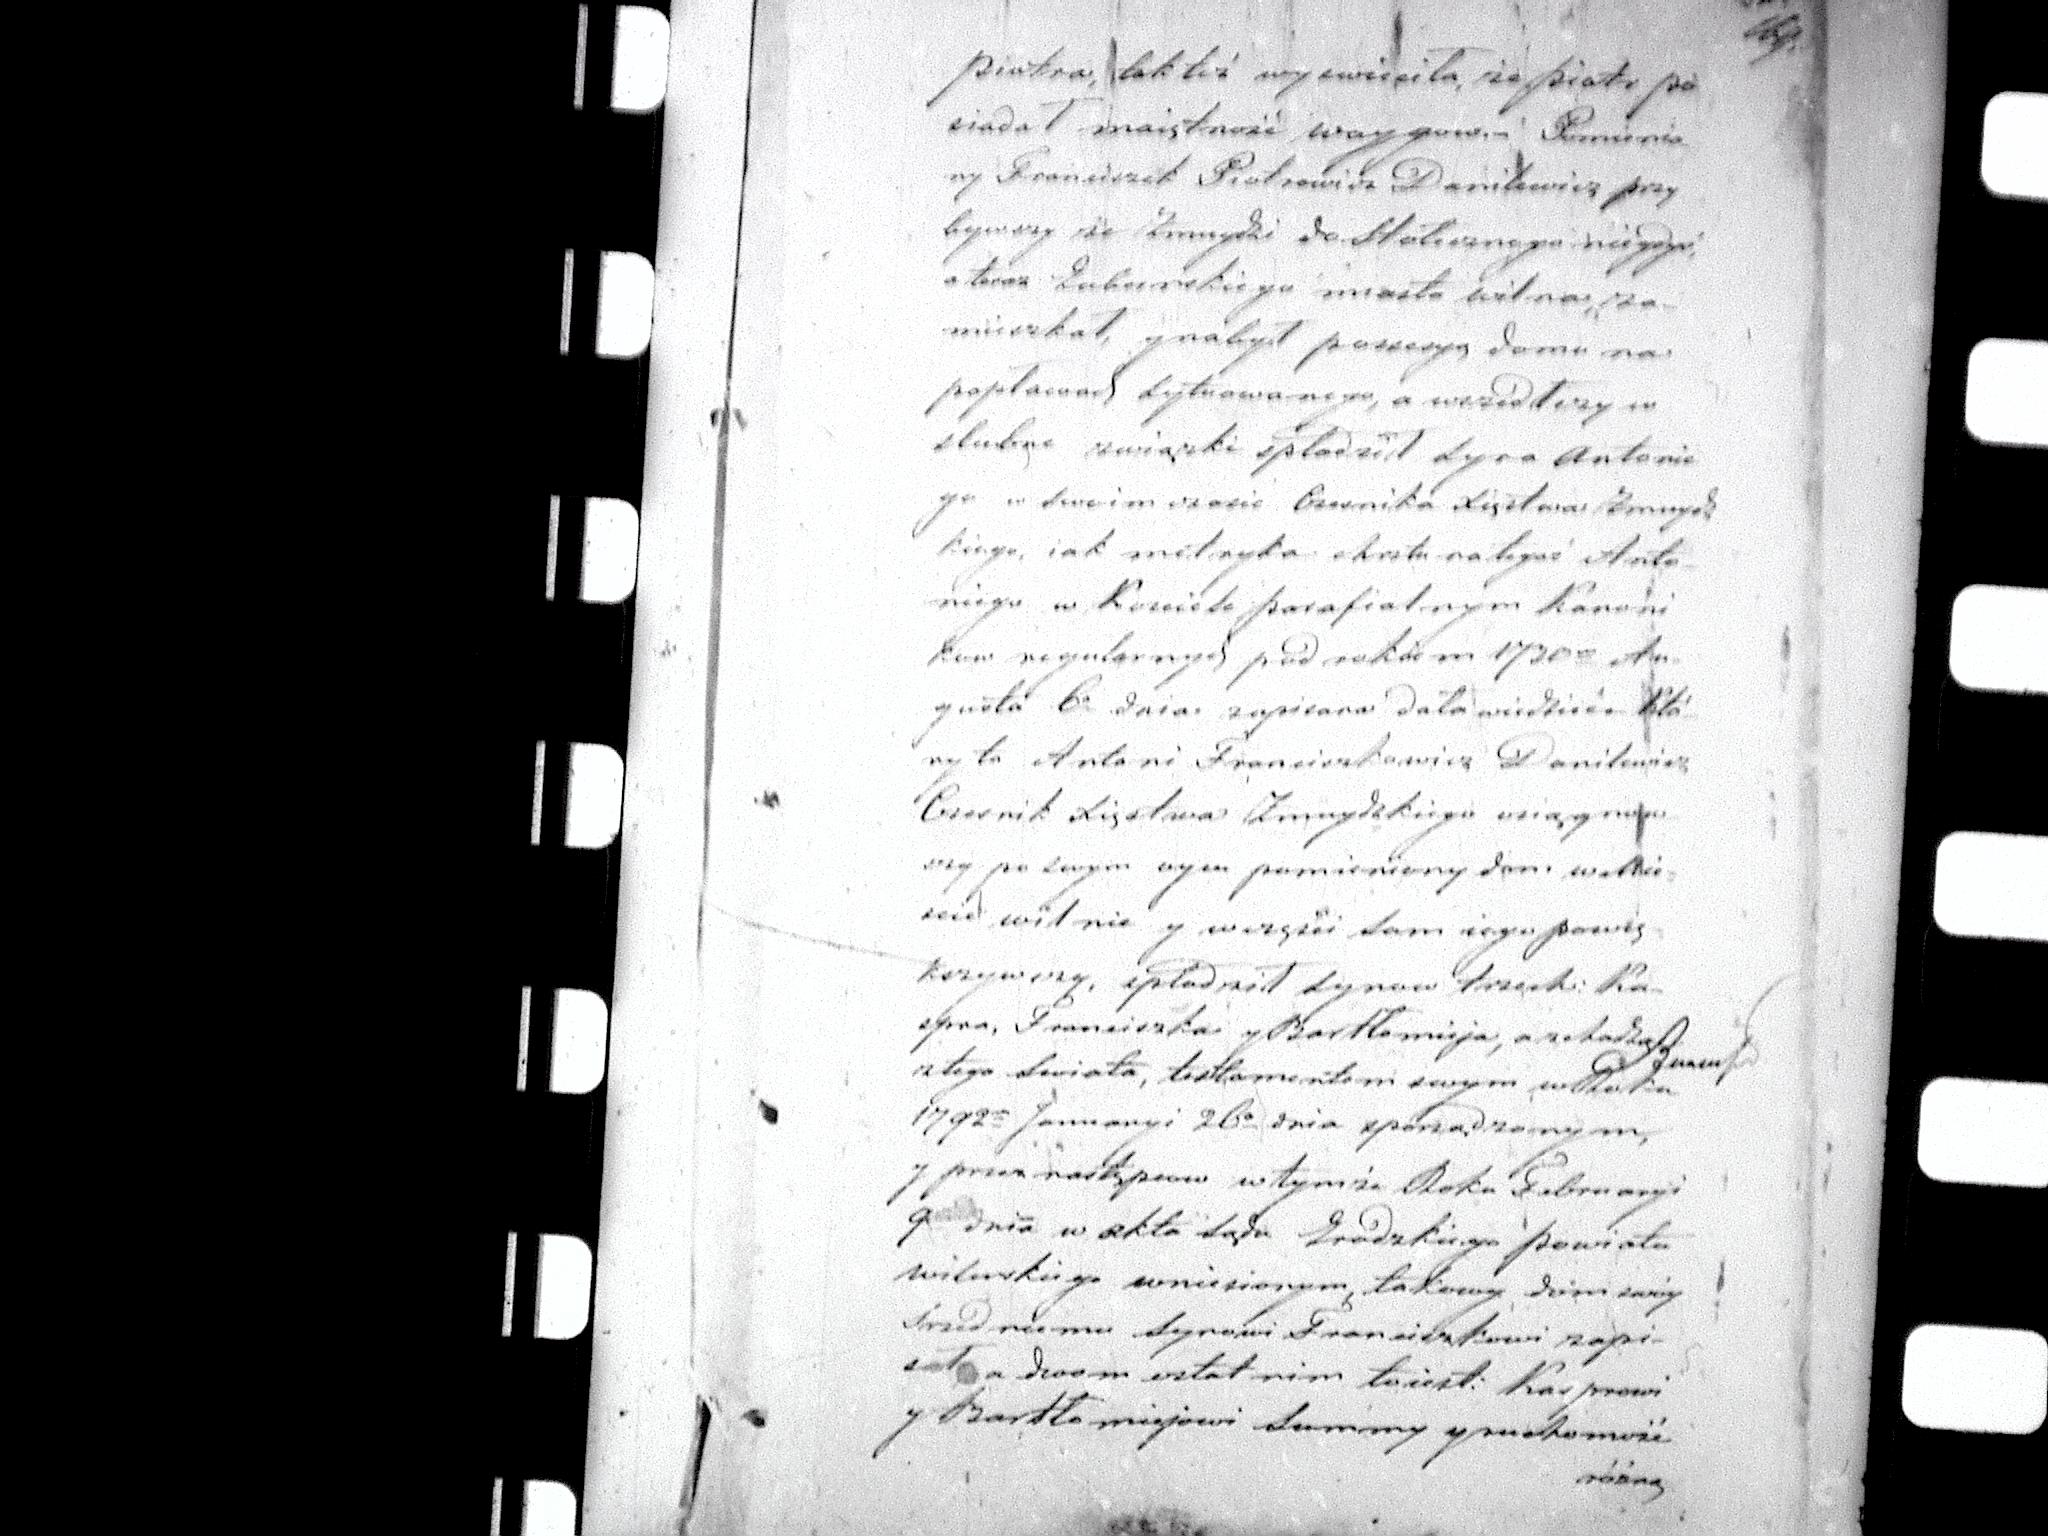 Piotra, tak też wyswieciła, że Piotr po
siadał maiętność Waygow.- Pomienio
ny Franciszek Piotrowicz Danilewicz przy
bywszy ze Żmuydzi do Stołecznego niegdyś,
a teraz Guberskiego miasta Wilna, za-
mieszkał, y nabył possesyą domu na
popławach sytuowanego, a wszedłszy w
slubne związki spłodził syna Antonie
go w swoim czasie Czesnika Xięstwa Żmuydz
kiego, iak metryka chrztu na tegoż Anto-
niego w Kosciele parafialnym Kanoni
kow regularnych pod rokiem 1730m Au-
gusta 6o dnia zapisana data wiedzieć. Któ
ry to Antoni Franciszkowicz Danilewicz
Czesnik Xięstwa Żmuydzkiego osiągnow
szy po swym oycu pomieniony dom w Mie-
scie Wilnie y w części sam iego powię
kszywszy, spłodził synow trzech: Ka-
spra, Franciszka y Bartłomieja, a schodząc
z tego swiata, testamentem swym w Roku
1792m Januaryi 26o dnia sporządzonym,
y przez następcow w tymże Roku Februaryi
9 dnia w akta Sądu Grodzkiego Powiatu
Wileńskiego wniesionym, takowy dom swóy
srzedniemu synowi Franciszkowi zapi-
sał a dwom ostatnim toiest: Kasprowi
y Bartłomiejowi Summy y ruchomość
różną